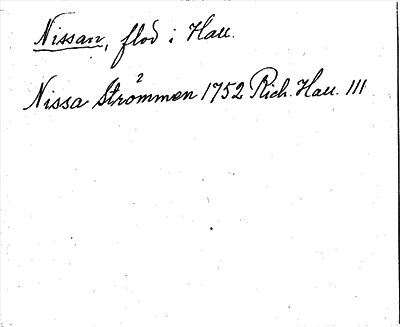 Nissan, flod i Hall.
Nissa Strömmen 1752 Rich. Hall. III